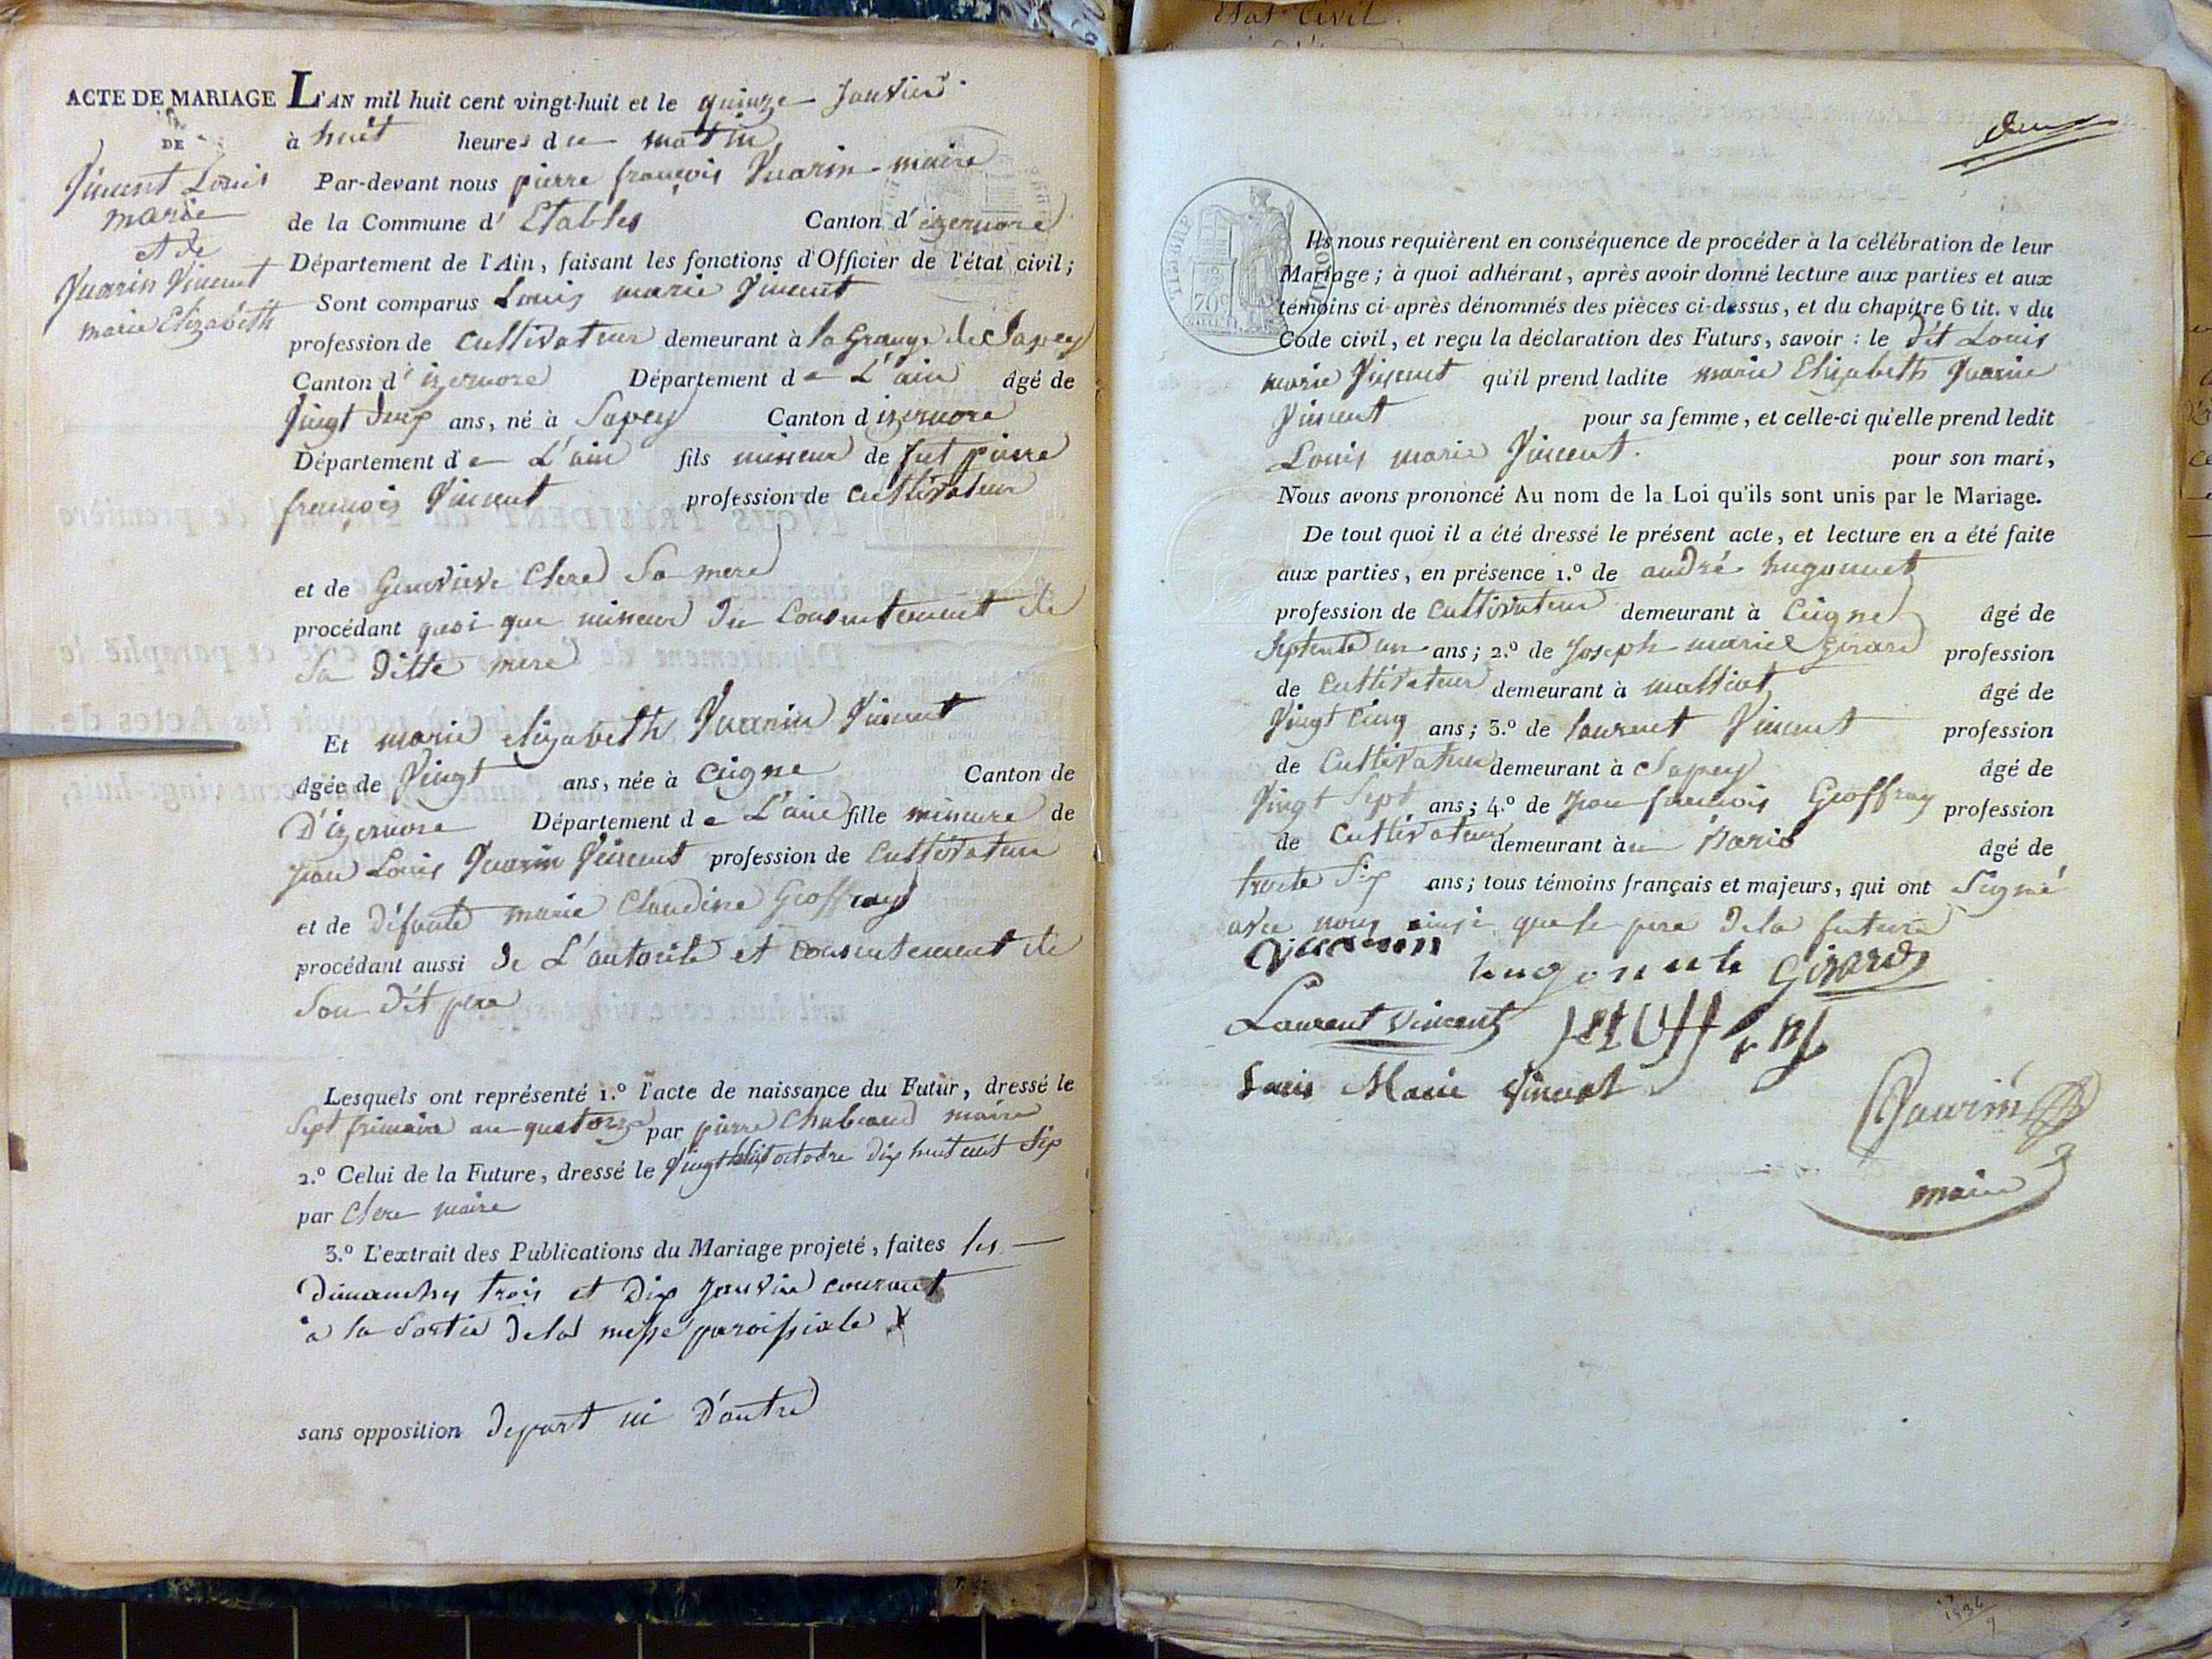 ACTE DE MARIAGE
DE
Vincent Louis
marie
et de
Vuarin Vincent
marie Elizabeth
L'AN mil huit cent vingt-huit et le quinze Janvier
à huit heures du matin
Par-devant nous pierre françois Vuarin maire
de la Commune d' Etables Canton d' izernore
Département de l'Ain, faisant les fonctions d'Officier de l'état civil;
Sont comparus Louis marie Vincent
profession de Cultivateur demeurant à la Grange de Sapey
Canton d' izernore Département de L'ain âgé de
Vingt deux ans, né à Sapey Canton d izernore
Département de L'ain fils mineur de fut pierre
françois Vincent profession de cultivateur
et de Genevieve Clerc Sa mere
procédant quoi que mineur du Consentement de
Sa ditte mere
Et marie elizabeth Vuarin Vincent
âgée de Vingt ans, née à Ceigne Canton de
D'izernore Département de L'ain fille mineure de
Jean Louis Vuarin Vincent profession de Cultivateur
et de défunte marie Claudine Geoffray
procédant aussi de L'autorité et consentement de
Son dit pere
Lesquels ont représenté 1.º l'acte de naissance du Futur, dressé le
Sept frimaire an quatorze par pierre Chabeaud maire
2.º Celui de la Future, dressé le Vingt huit octobre dix huit cent Sep
par Clerc maire
3.º L'extrait des Publications du Mariage projeté, faites les
Dimanches trois et Dix Janvier courant
a la Sortie de la messe paroissiale
sans opposition de part ni D'autre
deux
TIMBRE ROYAL
70c
Ils nous requièrent en conséquence de procéder à la célébration de leur
Mariage; à quoi adhérant, après avoir donné lecture aux parties et aux
témoins ci-après dénommés des pièces ci-dessus, et du chapitre 6 tit. v du
Code civil, et reçu la déclaration des Futurs, savoir : le dit Louis
marie Vincent qu'il prend ladite marie Elizabeth Vuarin
Vincent pour sa femme, et celle-ci qu'elle prend ledit
Louis marie Vincent. pour son mari,
Nous avons prononcé Au nom de la Loi qu'ils sont unis par le Mariage.
De tout quoi il a été dressé le présent acte, et lecture en a été faite
aux parties, en présence 1.º de andré hugonnet
profession de Cultivateur demeurant à Ceigne âgé de
Septente un ans; 2.º de Joseph marie Girard profession
de Cultivateur demeurant à mattiat âgé de
Vingt Cinq ans; 3.º de laurent Vincent profession
de Cultivateur demeurant à Sapey âgé de
Vingt Sept ans; 4.º de Jean francois Geoffray profession
de Cultivateur demeurant à un Baris âgé de
trente Six ans; tous témoins français et majeurs, qui ont Signé
avec nous ainsi que le pere de la future
Vuarin hugonnet Girard
Laurent Vincent
Louis Marie Vincent
Vuarin
maire